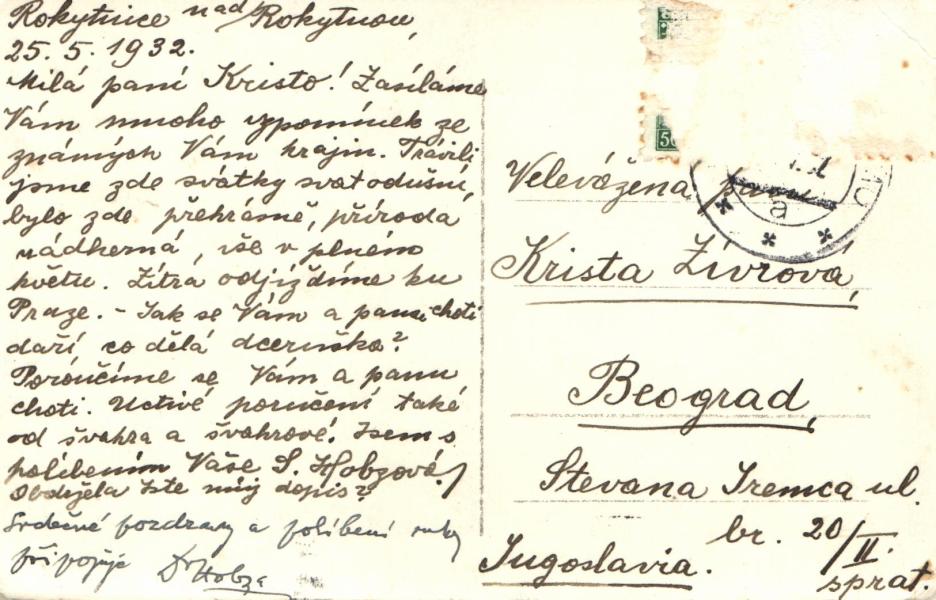 Rokytnice nad Rokytnou,
25. 5. 1932.
Milá paní Kristo! Zasíláme
Vám mnoho vzpomínek ze
známých Vám krajin. Trávili
jsme zde svátky svatodušní,
bylo zde překrásně, příroda
nádherná, vše v plném
květu. Zítra odjíždíme ku
Praze. – Jak se Vám a panu choti
daří, co dělá dceruška?
Poroučíme se Vám a panu
choti. Uctivé poručení také
od švahra a švahrové. Jsem s
políbením Vaše S. Hobzová!
Obdržela jste můj dopis?
Srdečné pozdravy a políbení ruky
připojuje Dr Hobza
50
a
Velevážená paní
Krista Živrová,
Beograd,
Stevana Sremca ul.
br. 20/II.
sprat.
Jugoslavia.